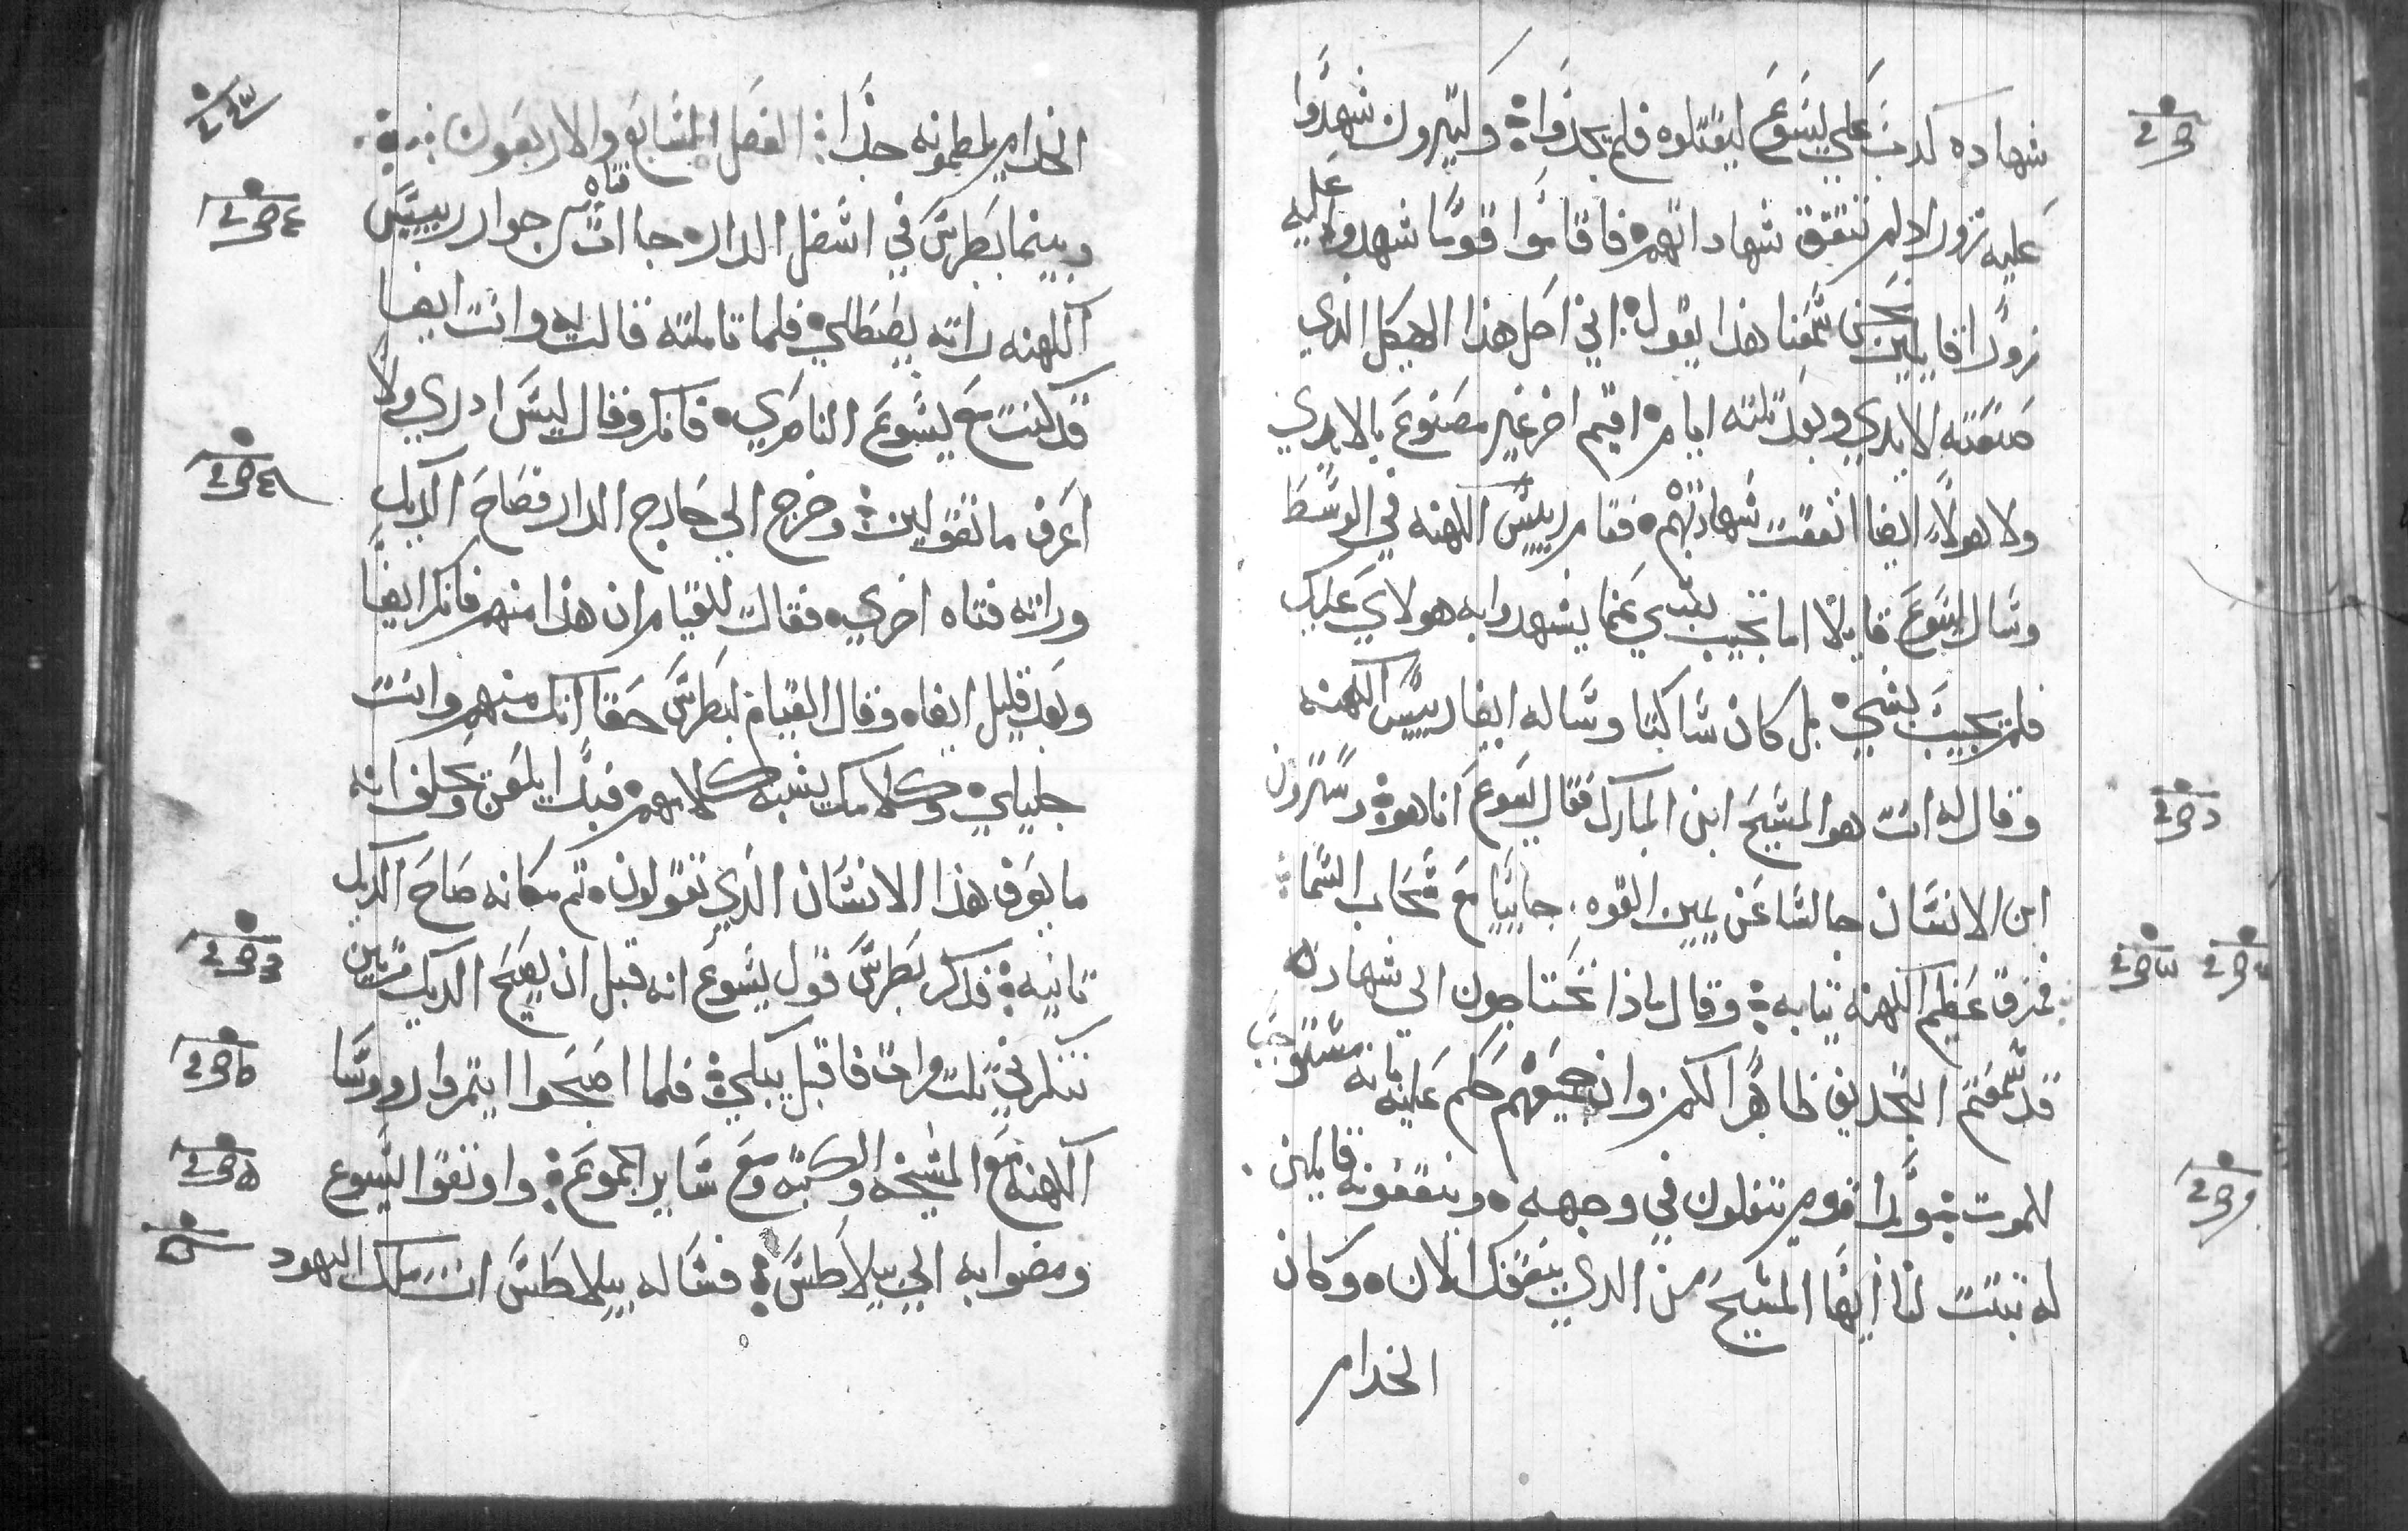 شهاده كدب علي يسوع ليقتلوه فلم يجدوا وكتيرون شهدوا
عليه زور اد لم تتفق شهاداتهم فاقاموا قوما شهدوا عليه
زورا قايلين نحن سمعنا هذا يقول اني احل هذا الهيكل الذي
صنعته الايدي وبعد تلته ايام اقيم اخر غير مصنوع بالايدي
ولا هولاء ايضا اتفقت شهادتهم فقام رييس الكهنه في الوسط
وسال يسوع قايلا اما تجيب بشي عما يشهدوا به هولاي عليك
فلم يجيب بشي بل كان ساكتا وساله ايضا رييس الكهنه
وقال له انت هو المسيح ابن المبارك فقال يسوع انا هو وسترون
ابن الانسان جالسا عن يمين القوه جاييا مع سحاب السما
فمزق عظيم الكهنه تيابه وقال ماذا تحتاجون الي شهاده
قد سمعتم التجديف ظاهرا لكم وان جميعهم حكم عليه بانه مستوجب
للموت قوم يتفلون في وجهه قايلين
له تنبت لنا ايها المسيح من الدي الان وكان
الخدام
الخدام يلطمونه جدا الفصل السابع والاربعون
وبينما بطرس في اسفل الدار جاات فتاه من جوار رييس
الكهنه راته يصطلي فلما تاملته قالت له وانت ايضا
قد كنت مع يسوع الناصري فانكر وقال ليس ادري ولا
اعرف ما تقولين وخرج الي خارج الدار فصاح الديك
وراته فتاه اخري فقالت للقيام ان هذا منهم فانكر ايضا
وبعد قليل ايضا وقال القيام لبطرس حقا انك منهم وانت
جليلي وكلامك يشبه كلامهم فبدا يلعن ويحلف انه
ما يعرف هذا الانسان الذي تقولون تم مكانه صاح الديك
تانيه فدكر بطرس قول يسوع انه قبل ان يصيح الديك مرتين
تنكرني تلت مرات فاقبل يبكي فلما اصبحوا ايتمروا رووسا
الكهنه مع المشيخه والكتبه ومع ساير الجموع واوتقوا ليسوع
ومضوا به الي بيلاطس فساله بيلاطس انت ملك اليهود